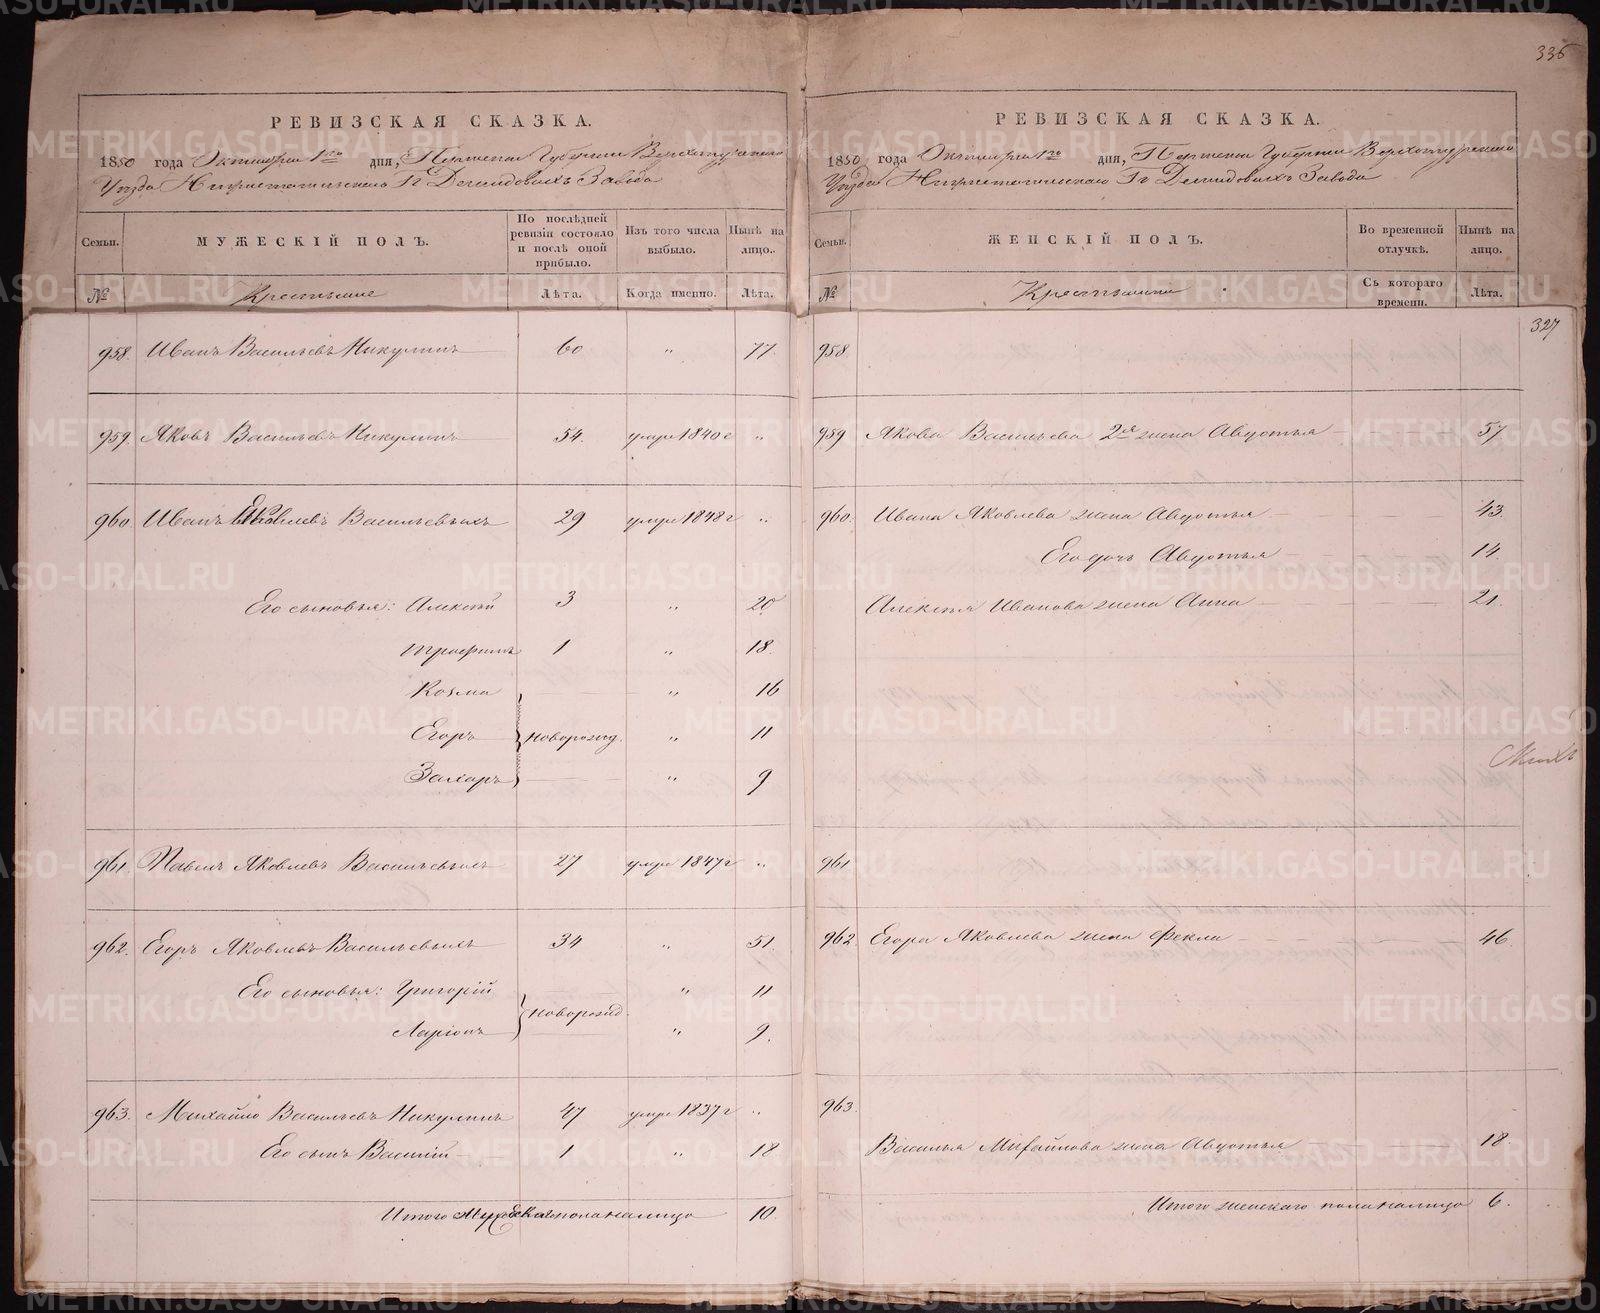 335
РЕВИЗСКАЯ СКАЗКА.
1850 года Октября 1го дня, Пермской Губернии Верхотурскаго
Уезда Нижнетагильскаго Гг Демидовыхъ Завода
Семьи. МУЖЕСКІЙ ПОЛЪ. По послѣдней ревизіи состояло и послѣ оной прибыло. Изъ того числа выбыло. Нынѣ на лицо.
№ Крестьяне Лѣта. Когда именно. Лѣта.
958. Иванъ Васильевъ Никулинъ 60 " 77.
959. Яковъ Васильевъ Никулинъ 54. умре 1840 г "
960. Иванъ Яковлевъ Васильевыхъ 29 умре 1848 г "
Его сыновья: Алексѣй 3 " 20
Трофимъ 1 " 18.
Козма " 16
Егоръ новорожд. " 11
Захаръ " 9
961. Павелъ Яковлевъ Васильевыхъ 27 умре 1847 г "
962. Егоръ Яковлевъ Васильевыхъ 34 " 51.
Его сыновья: Григорій " 11
новорожд.
Ларіонъ " 9.
963. Михайло Васильевъ Никулинъ 47 умре 1837 г "
Его сынъ Василій 1 " 18
Итого мужескаго пола налицо 10.
РЕВИЗСКАЯ СКАЗКА.
1850 года Октября 1го дня, Пермской Губернии Верхотурскаго
Уезда Нижнетагильскаго Гг Демидовыхъ Завода
Семьи. ЖЕНСКІЙ ПОЛЪ. Во временной отлучкѣ. Нынѣ на лицо.
№ Крестьянки Съ котораго времени. Лѣта.
327
958.
959 Якова Васильева 2я жена Авдотья 57
960. Ивана Яковлева жена Авдотья 43.
Его дочь Авдотья 14.
Алексѣя Иванова жена Анна 21.
961
962 Егора Яковлева жена Фекла 46.
963.
Василья Михайлова жена Авдотья 18.
Итого женскаго пола налицо 6.
METRIKI.GASO-URAL.RU